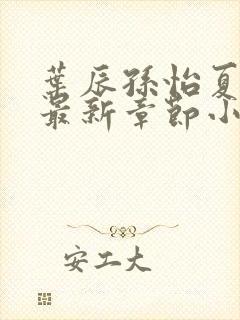 葉辰孫怡夏
最新章節小
安工大